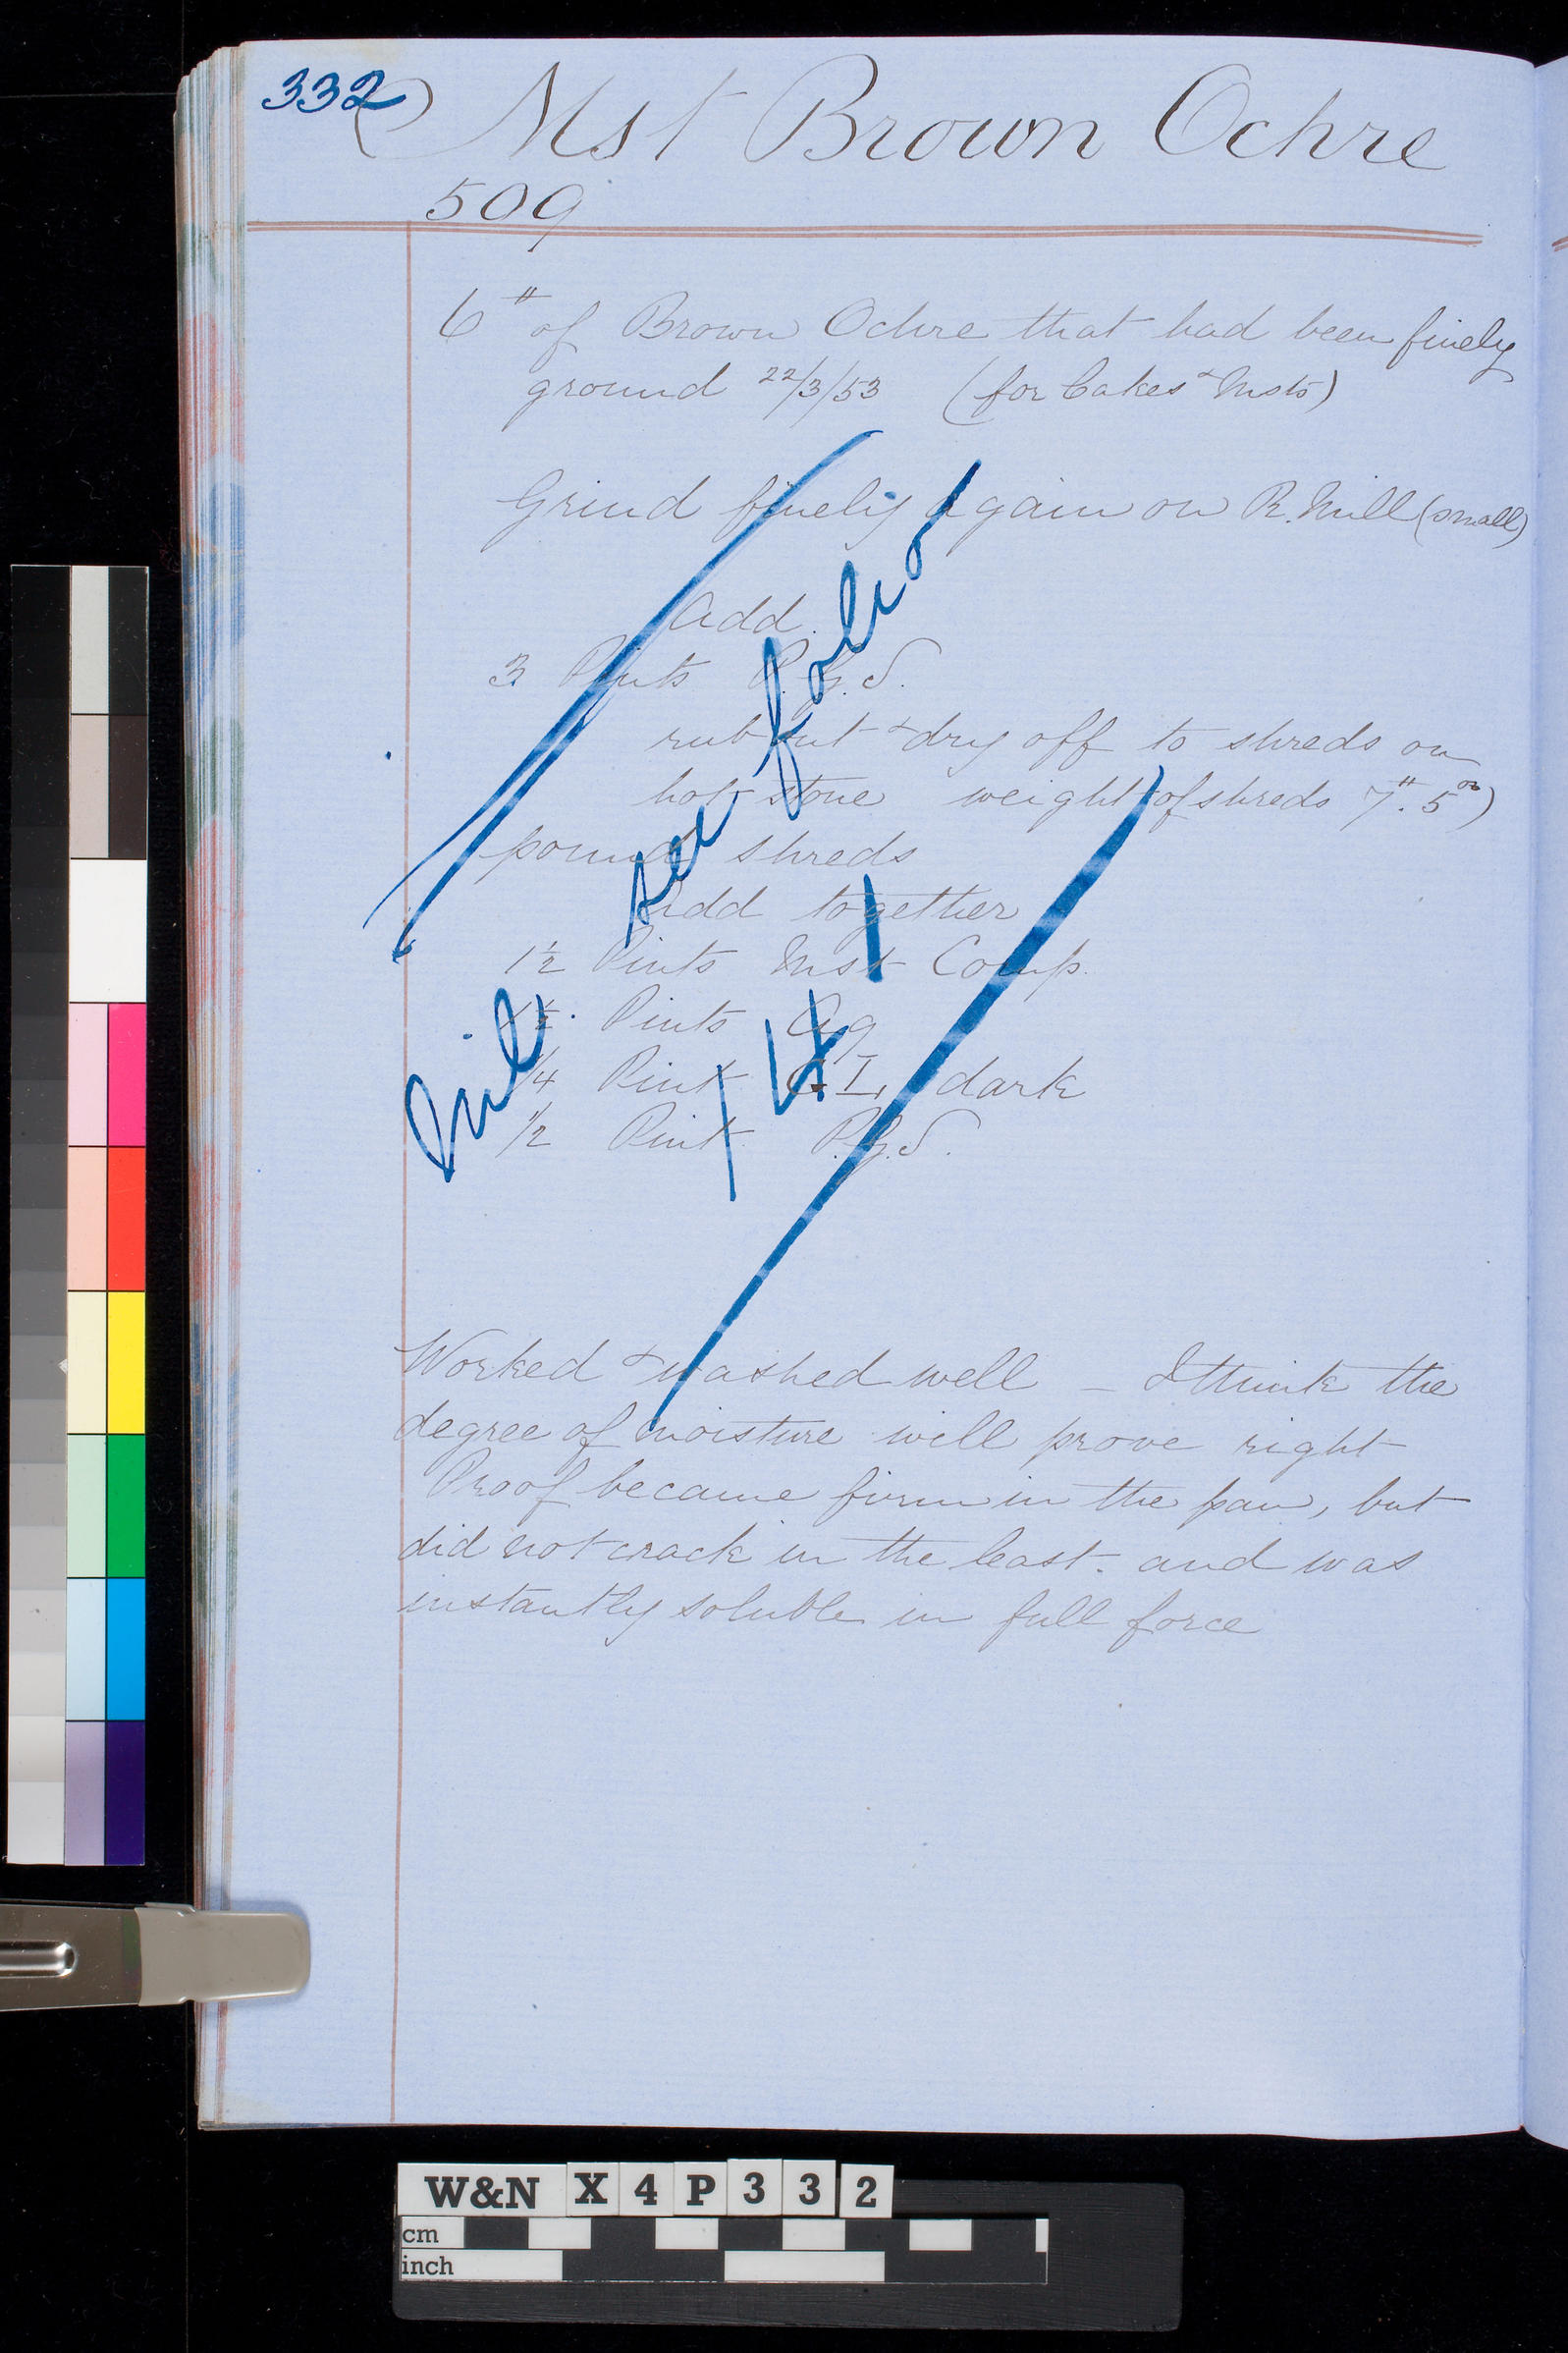 332
Mst Brown Ochre
509
6 # of Brown Ochre that had been finely
ground 22/3/53 (for Cakes & Msts)
Grind finely again on R. Mill (small)
Add.
3 Pints P.G.S.
rub out & dry off to shreds on
hot stone weight of shreds 7#. 5 oz)
pound shreds
add together
1½ Pints Mst Comp.
1½ Pints Ag
1/4 Pint G I, dark
1/2 Pint P.G.S.
see folio
141
Worked & washed well – I think the
degree of moisture will prove right
Proof became firm in the pan, but
did not crack in the least. and was
instantly soluble in full force
W&N X 4 P 3 3 2
cm
inch